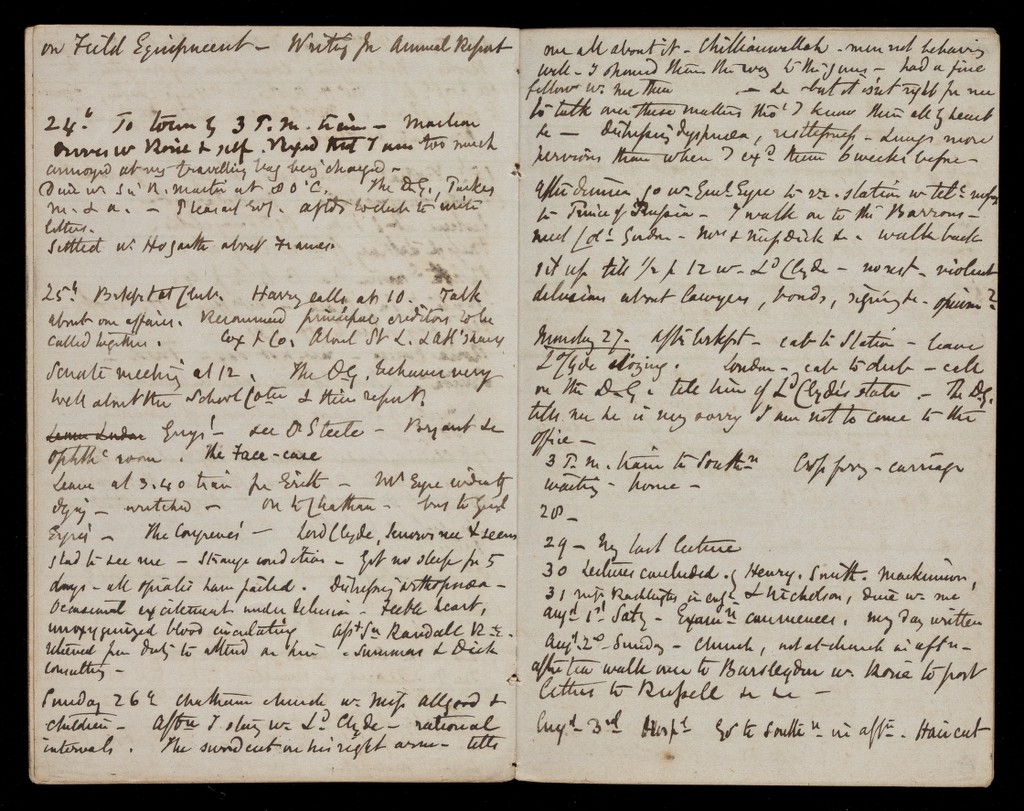 on Field Equipment - Writing for Annual Report
24th To town by 3 P.M. train - Maclean
drives w. Rosie & self. Vexed that I am too much
annoyed at my travelling bag being changed -
Dine w. Sir R. Martin at 8 O'C. The D.G., Parkes
M. & a. - Pleasant Evg. after to club to write
letters.
Settled w. Hogarth about Frames.
25th Bkfst at Club. Harry calls at 10. Talk
about our affairs. Recommend principal creditors to be
called together. Cox & Co. About St L. &
Senate meeting at 12. The D.G. behaves very
well about the School & their report.
Guy's! see Dr Steele - Bryant &c
Ophthc room. The Face-case
Leave at 3.40 train for Erith - Mr Eyre evidently
dying - wretched - on to Chatham - bus to Genl
Eyre's - The Congreves - Lord Clyde, knows me & seems
glad to see me - Strange condition - Got no sleep for 5
days - all opiates have failed. Distressing orthopnoea -
Occasional excitement under delusion - Feeble heart,
unoxygenized blood circulating Asst Sn Randall R.E.
relieved from duty to attend on him - Summers & Dick
consulting -
Sunday 26th Chatham church w. Miss Allgood &
children - Aftn I stay w. Ld Clyde - rational
intervals. The sword cut on his right arm - tells
me all about it - Chillianwallah - men not behaving
well - I showed them the way to the guns - had a fine
fellow w. me then - &c but it isn't right for me
to talk over these matters tho' I know them all by heart
&c - Distressing dyspnoea, restlessness - Lungs more
pervious than when I exd them 6 weeks before -
After dinner go w. Genl Eyre to station w. telc
to Prince of Prussia - I walk on to the Barrens -
meet Col. Gordon - Mrs & Miss Dick &c - walk back
sit up till 1/2 p 12 w. Ld Clyde - no rest - violent
delusions about lawyers, bonds, signing &c - opium?
Monday 27. After bkfst - cab to Station - leave
Ld Clyde dozing. London - cab to club - call
on the D.G. & tell him of Ld Clyde's state - The D.G.
tells me he is very sorry I am not to come to the
office -
3 P.M. train to Southn carriage
waiting - home -
28 -
29 - My last lecture
30 Lectures concluded. Henry. Smith. Mackinnon,
31 & Nicholson, dine w. me
Augt 1st Saty - Examn commences. my day written
Augt 2nd Sunday - Church, not at church in aftn -
after tea walk over to Bursledon w. Rosie to post
letters to Russell &c &c -
Augt 3rd Hospl Go to Southn in aftn - Hair cut